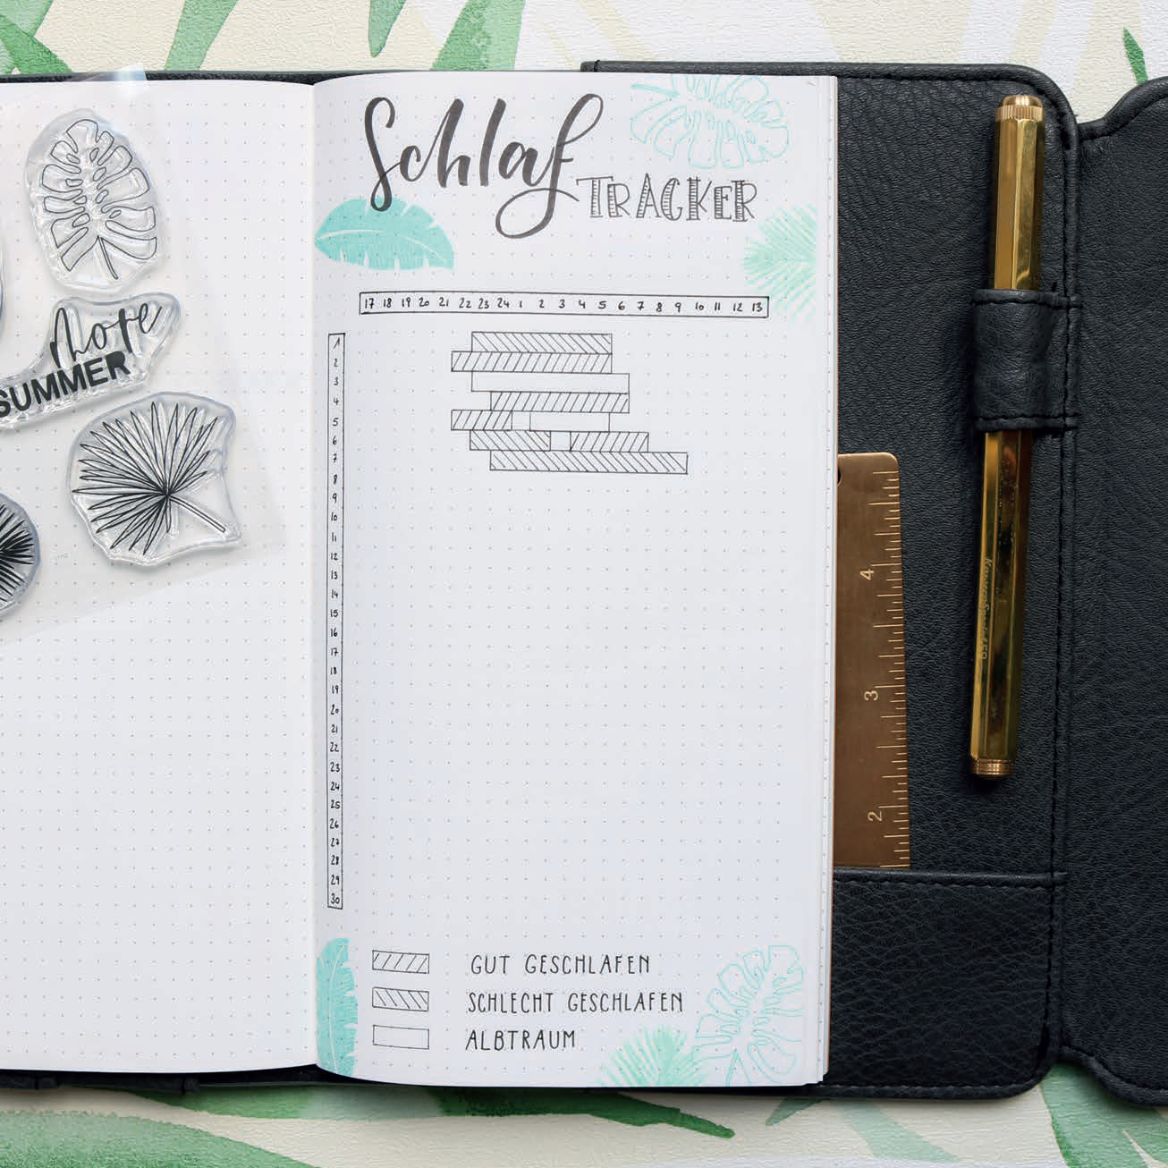 Schlaf
TRACKER
more
SUMMER
17 18 19 20 21 22 23 24 1 2 3 4 5 6 7 8 9 10 11 12 13
1
2
3
4
5
6
7
8
9
10
11
12
13
14
15
16
17
18
19
20
21
22
23
24
25
26
27
28
29
30
GUT GESCHLAFEN
SCHLECHT GESCHLAFEN
ALBTRAUM
4
3
2